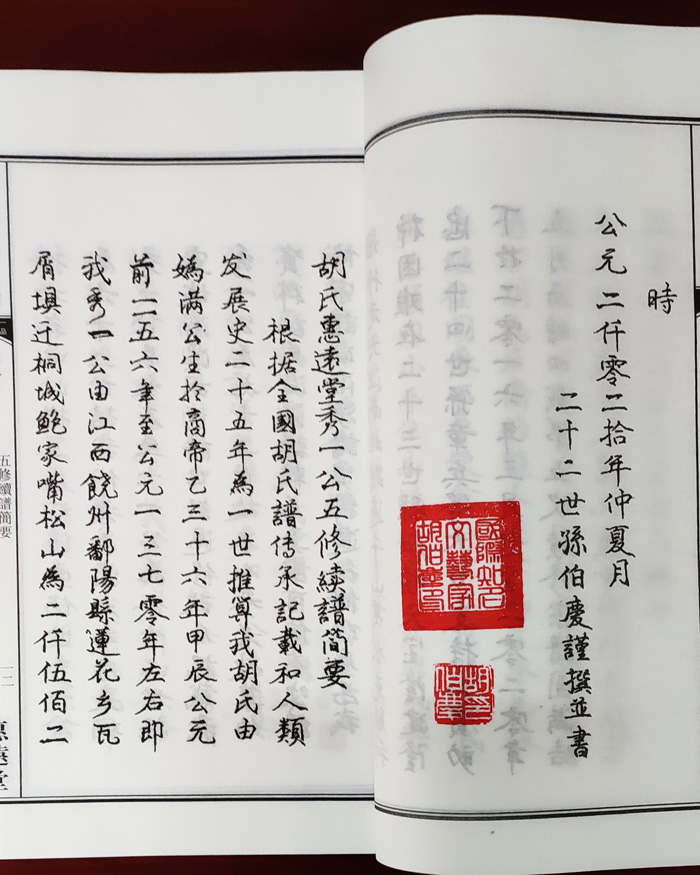 時
公元二仟零二拾年仲夏月
二十二世孫伯慶謹撰並書
國際知名
文藝家
胡伯慶印
胡印
伯慶
胡氏惠遠堂秀一公五修续譜简要
根据全國胡氏譜传承記載和人類
发展史二十五年為一世推算我胡氏由
媯满公生於商帝乙三十六年甲辰公元
前一一五六年至公元一三七零年左右即
我秀一公由江西饒州鄱陽縣蓮花乡瓦
屑垻迁桐城鲍家嘴松山為二仟伍佰二
五修續譜簡要
惠遠堂